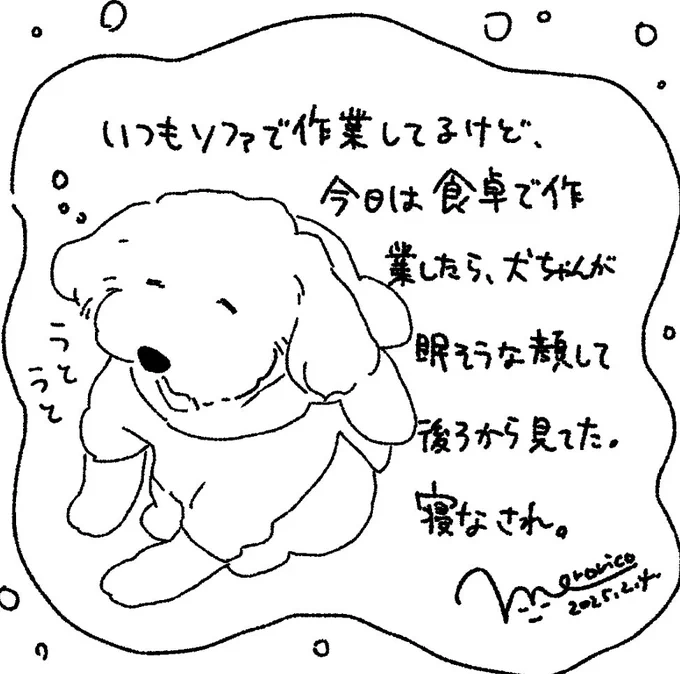 いつもソファで作業してるけど、
今日は食卓で作
業したら、犬ちゃんが
眠そうな顔して
後ろから見てた。
寝なされ。
うと
うと
mororico
2025.2.4